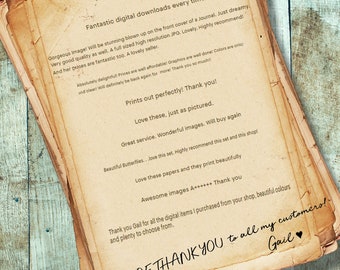 Fantastic digital downloads every
Gorgeous image! Will be stunning blown up on the front cover of a journal. Just dreamy.
Very good quality as well. A full sized high resolution JPG. Lovely. Highly recommend!
And her prices are fantastic too. A lovely seller.
Absolutely delightful! Prices are well affordable! Graphics are well done! Colors are crisp
and clean! Will definitely be back again for more! Thank you so much!!
Prints out perfectly! Thank you!
Love these, just as pictured.
Great service. Wonderful images. Will buy again
Beautiful Butterflies... love this set. Highly recommend this set and this shop!
Love these papers and they print beautifully
Awesome images A++++++ Thank you
Thank you Gail for all the digital items I purchased from your shop, beautiful colours
and plenty to choose from.
THANKYOU to all my customers!
Gail ♥